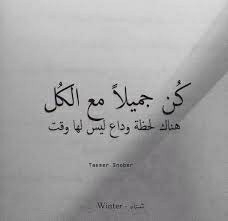 كُن جميلاً مع الكُل
هناك لحظة وداع ليس لها وقت
Taeser Snober
شتاء - Winter